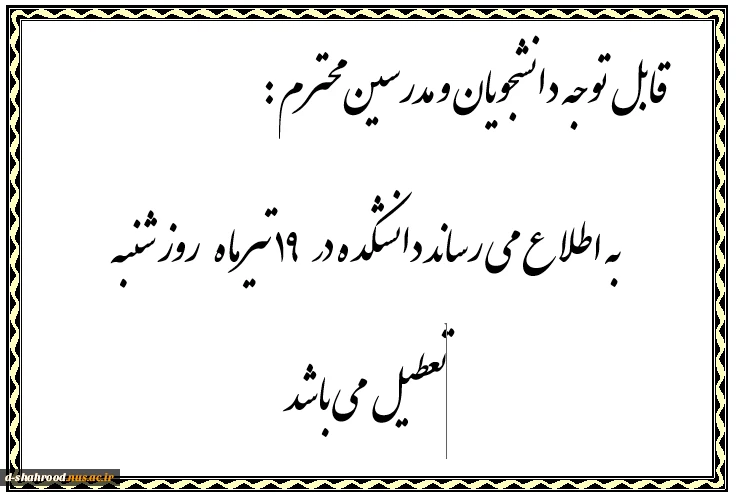 قابل توجه دانشجویان و مدرسین محترم :
به اطلاع می رساند دانشکده در ۱۹ تیرماه روز شنبه
تعطیل می باشد
d-shahrood.nus.ac.ir